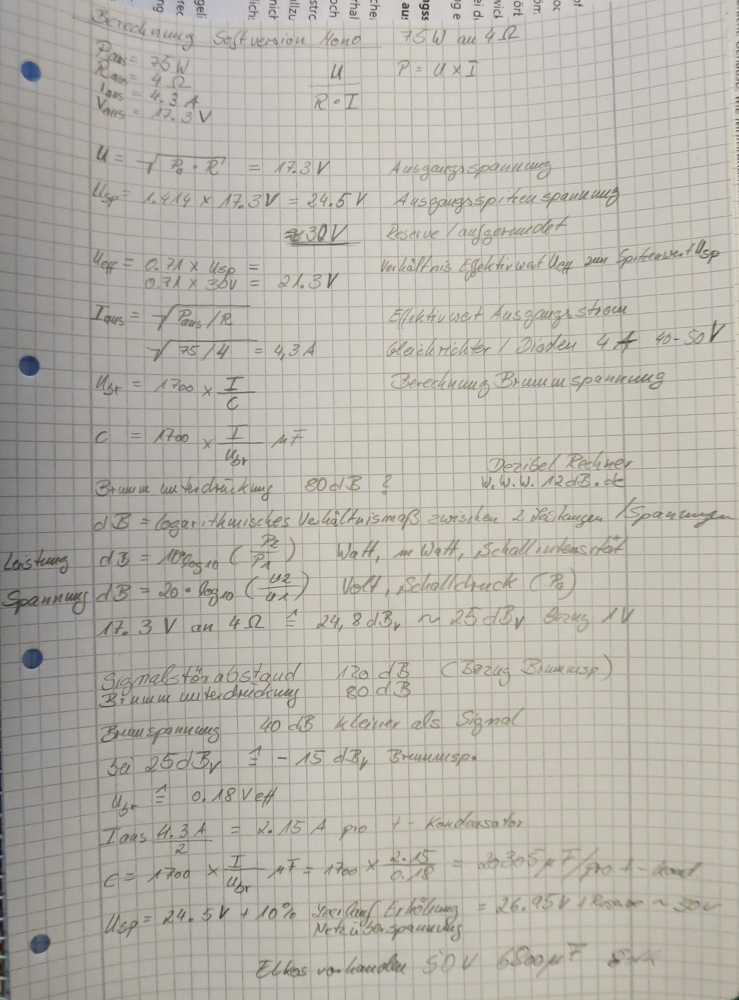 Berechnung Softversion Mono 75W an 4Ω
Paus = 75W
Raus = 4Ω
Iaus = 4.3A
Vaus = 17.3V
U
R · I
P = U × I
U = √Pa · R = 17.3V Ausgangsspannung
Usp = 1.414 × 17.3V = 24.5V Ausgangsspitzenspannung
≈30V Reserve / aufgerundet
Ueff = 0.71 × Usp = Verhältnis Effektivwert Ueff zum Spitzenwert Usp
0.71 × 30V = 21.3V
Iaus = √Paus/R Effektivwert Ausgangsstrom
√75/4 = 4,3A Gleichrichter / Dioden 4A 40-50V
Ubr = 1700 × I/C Berechnung Brummspannung
C = 1700 × I/Ubr µF
Dezibel Rechner
Brummunterdrückung 80dB ? W.W.W. 12dB.de
dB = logarithmisches Verhältnismaß zwischen 2 Leistungen / Spannungen
Leistung dB = 10 log10 (P2/P1) Watt, mWatt, Schallintensität
Spannung dB = 20 · log10 (U2/U1) Volt, Schalldruck
17.3V an 4Ω ≙ 24,8dBv ~ 25dBv Bezug 1V
Signalstörabstand 120dB (Bezug Brummsp)
Brummunterdrückung 80dB
Brumspannung 40dB kleiner als Signal
bei 25dBv ≙ -15dBv Brummsp.
Ubr ≙ 0.18Veff
Iaus 4.3A/2 = 2.15A pro + - Kondensator
C = 1700 × I/Ubr µF = 1700 × 2.15/0.18 = 20305µF/pro + -
Usp = 24.5V + 10% Leerlauf Erhöhung = 26.95V + Reserve ~ 30V
Netzüberspannung
Elkos vorhanden 50V 6800µF